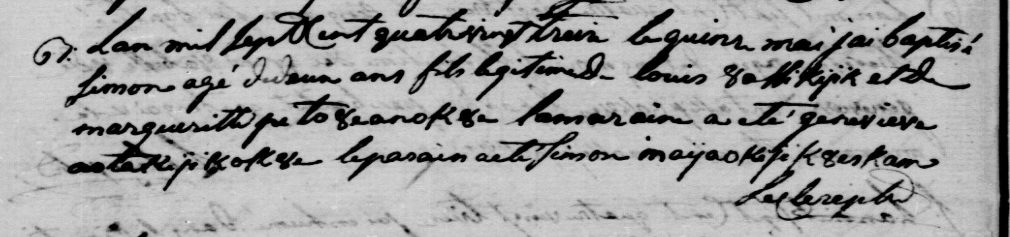 Lan mil Sept Cent quatrevingt treize le quinze mai jai baptisé
Simon agé de deux ans fils legitime de louis 8assikijik et de
marguerithe pe to8eanok8e la maraine a eté genevieve
aotakijikok8e le parain a eté Simon maijaokijik8eskam